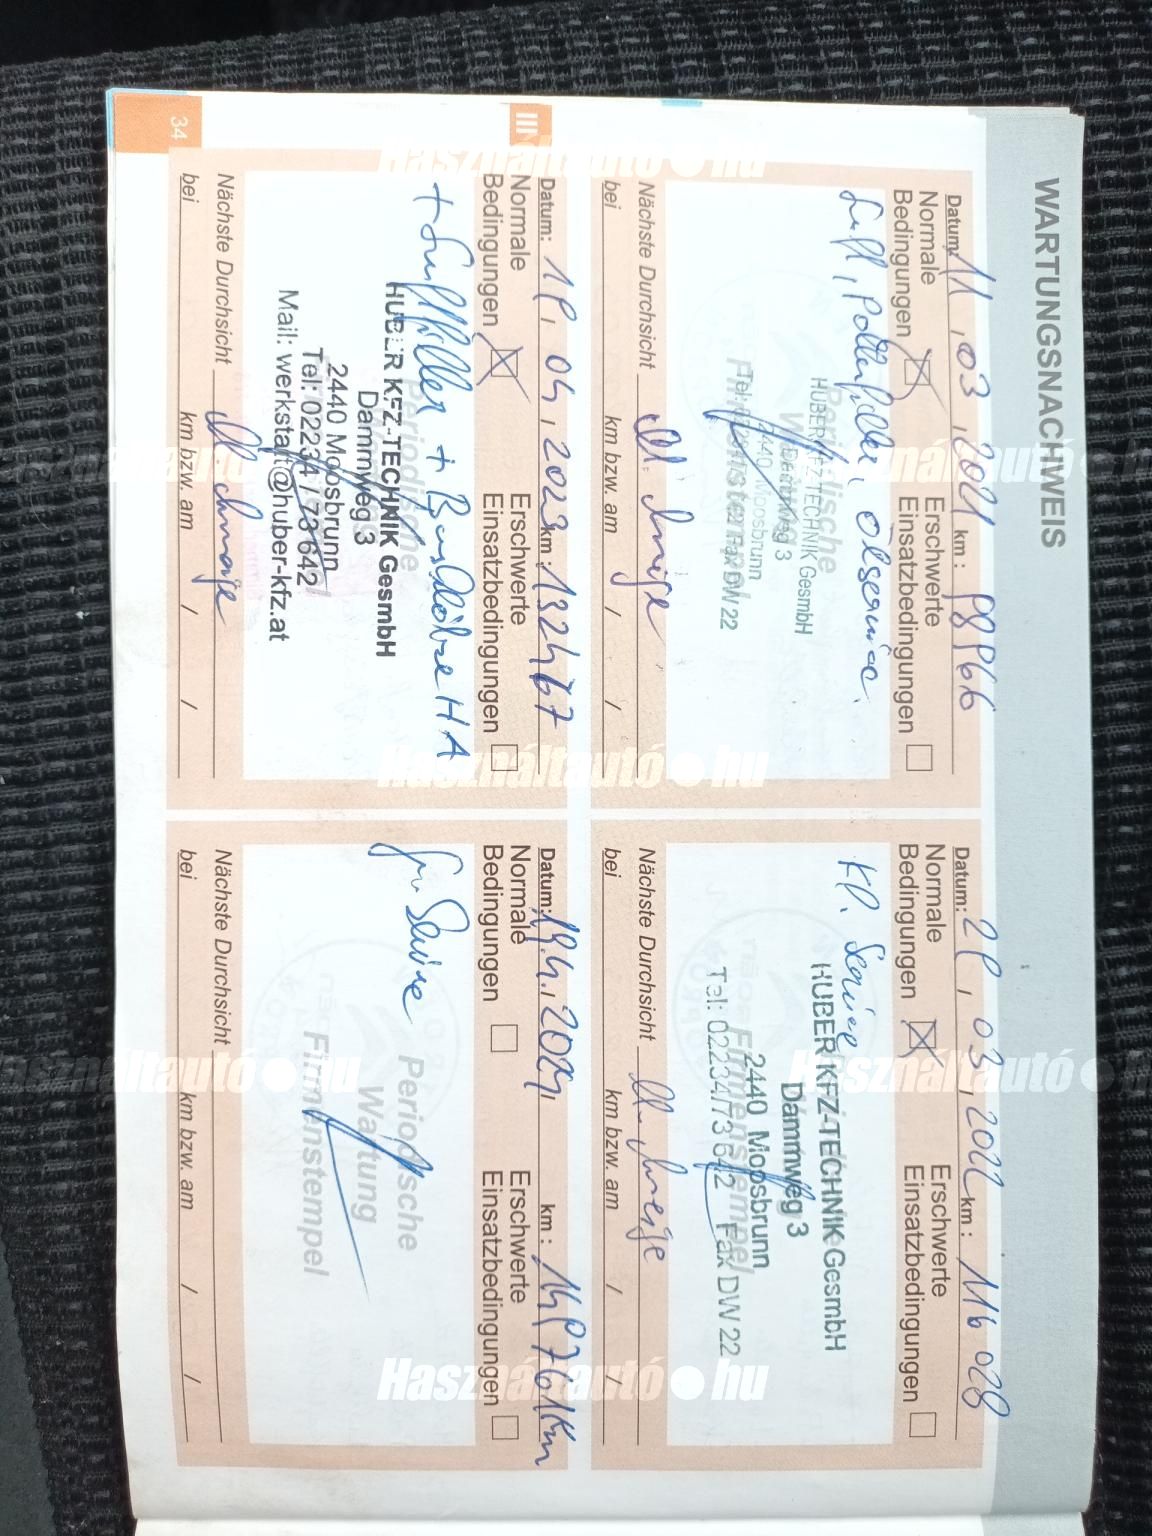 WARTUNGSNACHWEIS
Datum: 11.03.2021 km: 98966
Normale Bedingungen
Erschwerte Einsatzbedingungen
Luft, Pollenfilter, Ölservice
Periodische
Wartung
Firmenstempel
HUBER KFZ-TECHNIK GesmbH
Dammweg 3
2440 Moosbrunn
Fax DW 22
Nächste Durchsicht
bei km bzw. am / /
Datum: 29.03.2022 km: 116 028
Normale Bedingungen
Erschwerte Einsatzbedingungen
Service
HUBER KFZ-TECHNIK GesmbH
Dammweg 3
2440 Moosbrunn
Tel: 02234/73642 Fax DW 22
Firmenstempel
Nächste Durchsicht
bei km bzw. am / /
III
Datum: 19.04.2023 km: 132467
Normale Bedingungen
Erschwerte Einsatzbedingungen
+ Luftfilter + Bremsklötze HA
Periodische
HUBER KFZ-TECHNIK GesmbH
Dammweg 3
2440 Moosbrunn
Tel: 02234 / 73 642
Mail: werkstatt@huber-kfz.at
Nächste Durchsicht
bei km bzw. am / /
Datum: 19.4.2024 km: 149761 km
Normale Bedingungen
Erschwerte Einsatzbedingungen
Service
Periodische
Wartung
Firmenstempel
Nächste Durchsicht
bei km bzw. am / /
34
Használtautó.hu
Használtautó.hu
Használtautó.hu
Használtautó.hu
Használtautó.hu
Használtautó.hu